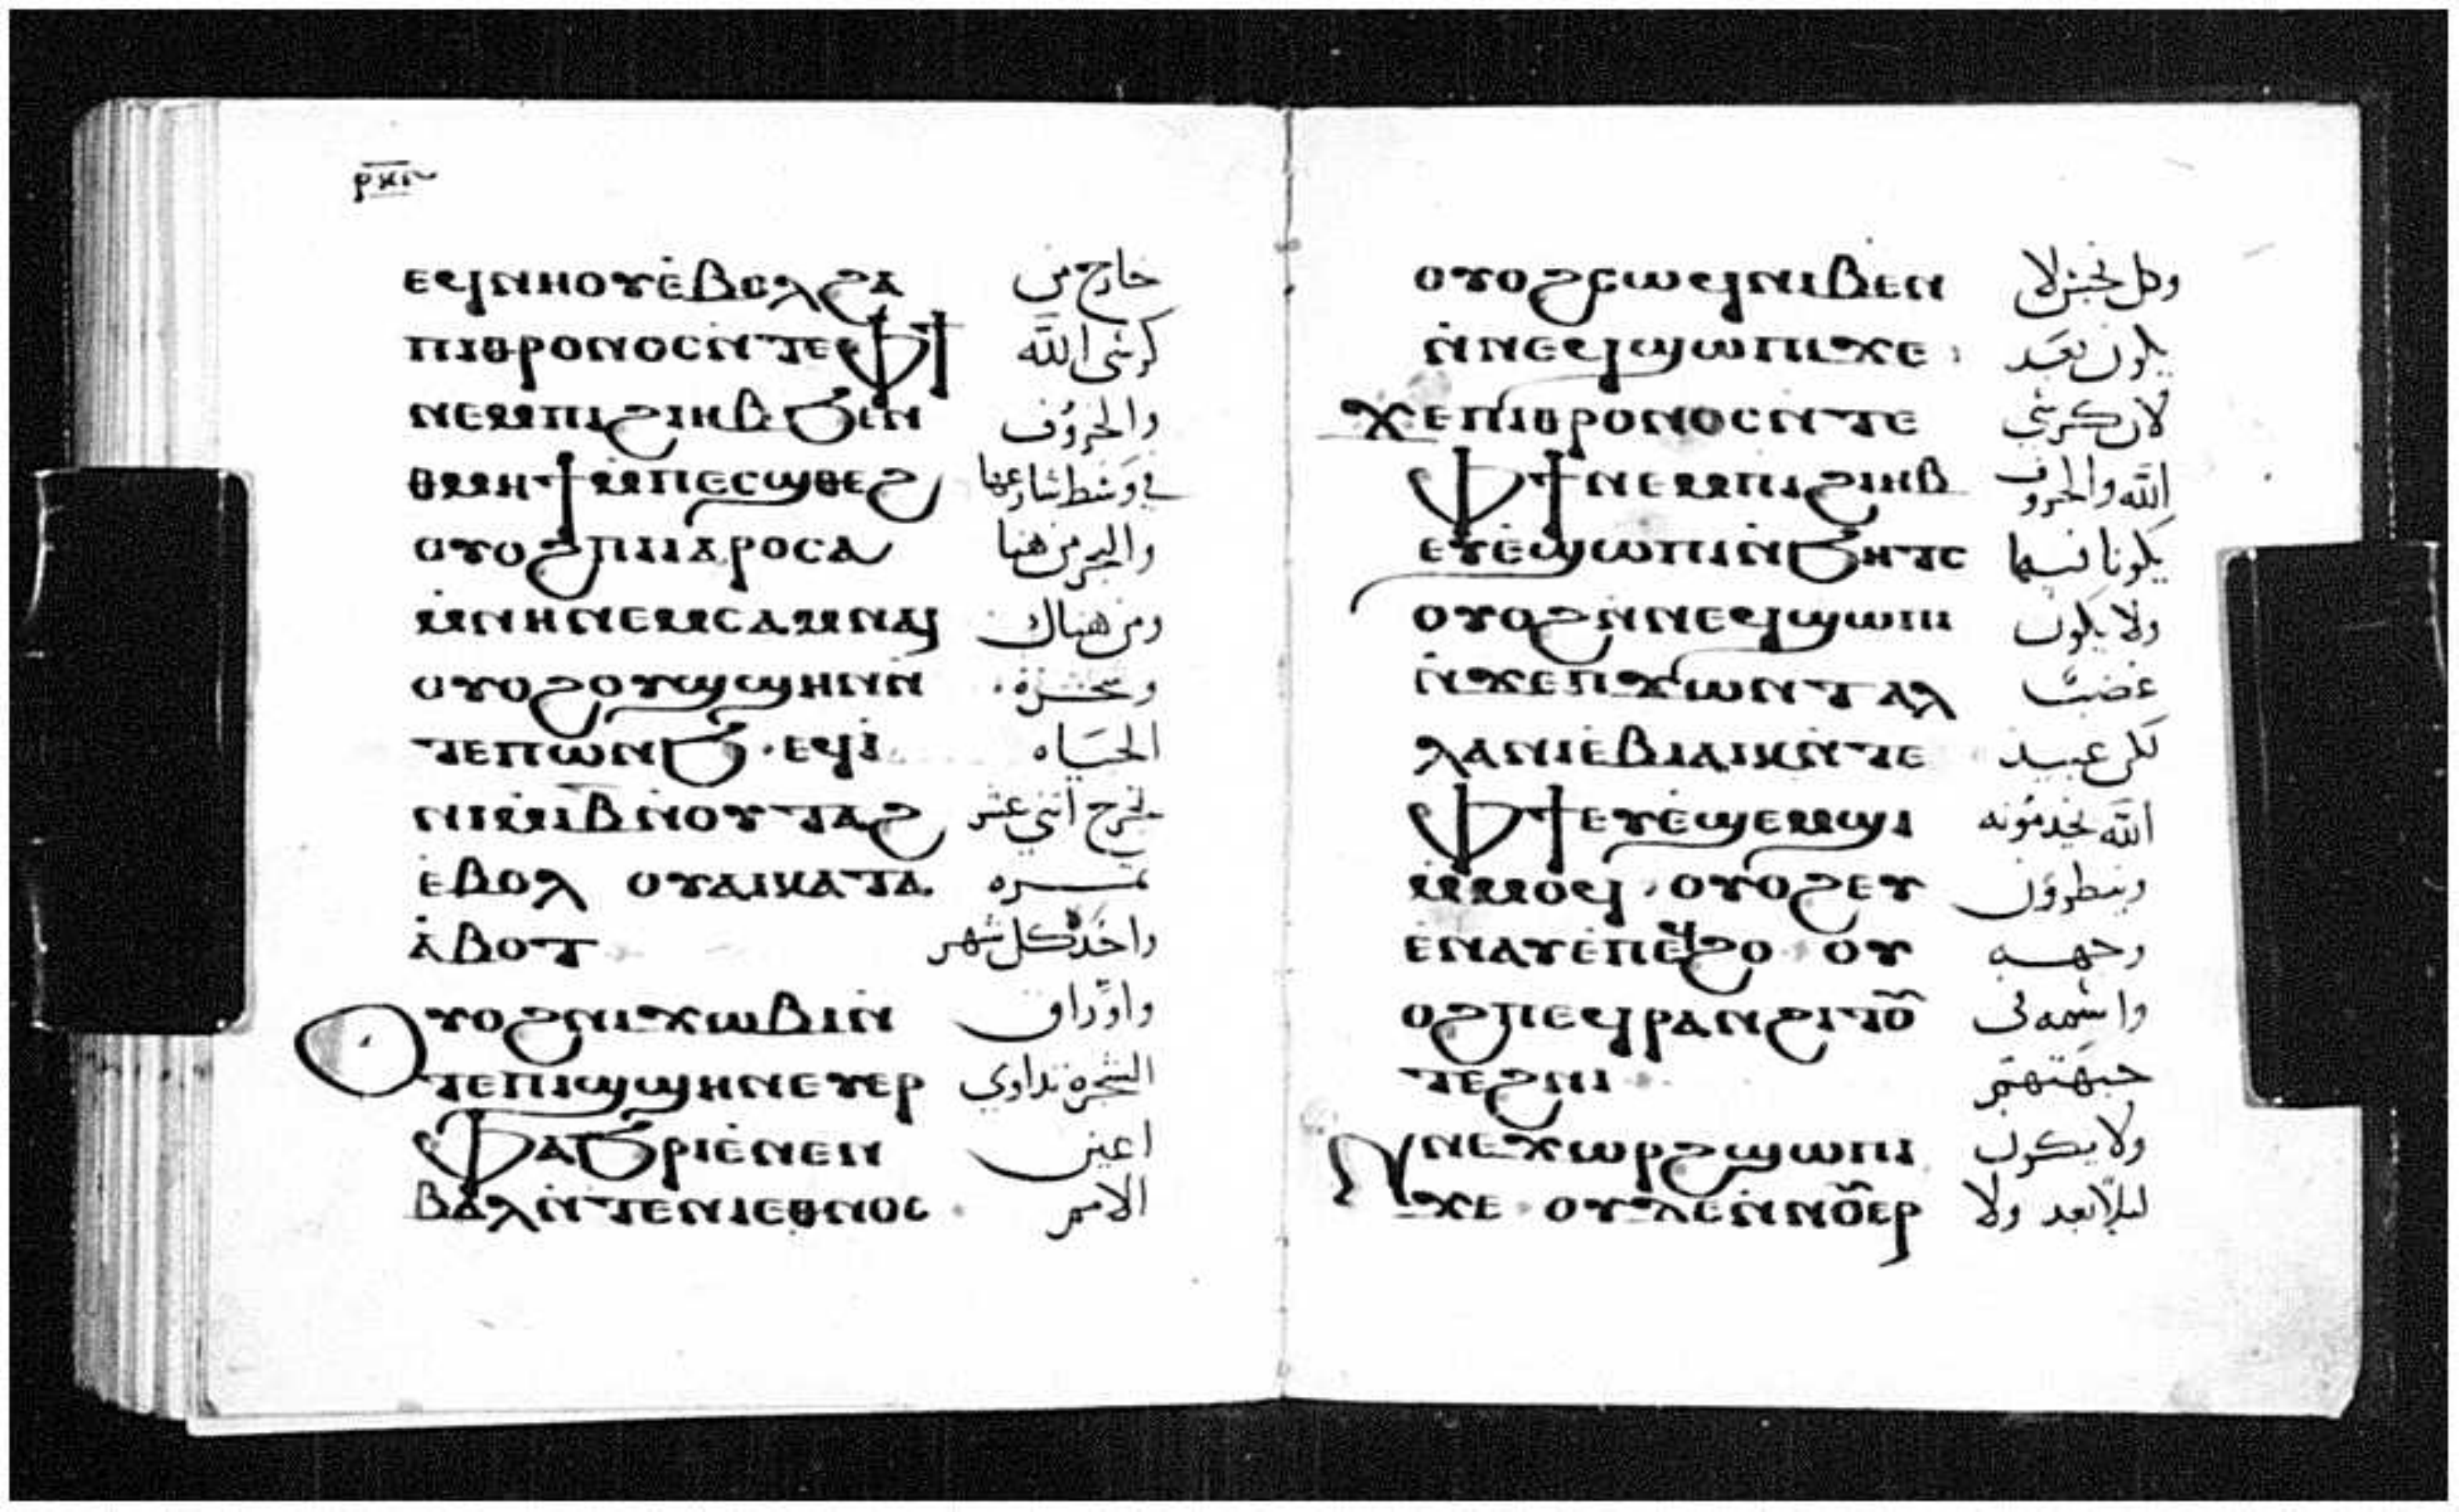 ⲣⲕⲅ
ⲉϥⲛⲏⲟⲩⲉ̀ⲃⲟⲗϩⲁ خارج من
ⲡⲓⲑⲣⲟⲛⲟⲥⲛ̀ⲧⲉⲫϯ كرسى الله
ⲛⲉⲙⲡⲓϩⲓⲏⲃ ϧⲉⲛ والخروف
ⲑⲙⲏϯⲙ̀ⲡⲉⲥϣⲑⲉϩ في وسط شارعها
ⲟⲩⲟϩⲡⲓⲓⲁⲣⲟⲥⲁ والبحر من هنا
ⲙ̀ⲛⲏⲛⲉⲙⲥⲁⲙⲛⲁⲓ ومن هناك
ⲟⲩⲟϩⲟⲩϣϣⲏⲛⲛ̀ وشجرة
ⲧⲉⲡⲱⲛϧ·ⲉϥⲓ̀ الحياه
ⲛⲓⲙ̀ⲓ̅ⲃ̅ⲛ̀ⲟⲩⲧⲁϩ تخرج أثني عشر
ⲉ̀ⲃⲟⲗ ⲟⲩⲁⲓⲕⲁⲧⲁ ثمره
ⲁ̀ⲃⲟⲧ واحده كل شهر
ⲟⲩⲟϩⲛⲓϫⲱⲃⲓⲛ̀ واوراق
ⲧⲉⲡⲓϣϣⲏⲛⲉⲩⲉⲣ الشجره تداوي
ⲫⲁϧⲣⲓⲉ̀ⲛⲉⲛ اعين
ⲃⲁⲗⲛ̀ⲧⲉⲛⲓⲉⲑⲛⲟⲥ الامم
ⲟⲩⲟϩⲥⲱϥⲛⲓⲃⲉⲛ وكل نجس لا
ⲛ̀ⲛⲉϥϣⲱⲡⲓϫⲉ يكون بعد
ϫⲉⲡⲓⲑⲣⲟⲛⲟⲥⲛ̀ⲧⲉ لان كرسي
ⲫϯⲛⲉⲙⲡⲓϩⲓⲏⲃ الله والخروف
ⲉⲩⲉ̀ϣⲱⲡⲓⲛ̀ϧⲏⲧⲥ يكونا فيها
ⲟⲩⲟϩⲛ̀ⲛⲉϥϣⲱⲡⲓ ولا يكون
ⲛ̀ϫⲉⲡϫⲱⲛⲧⲁⲗ غضب
ⲗⲁⲛⲓⲉ̀ⲃⲓⲁⲓⲕⲛ̀ⲧⲉ لكن عبيد
ⲫϯⲉⲩⲉ̀ϣⲉⲙϣⲓ الله يخدمونه
ⲙ̀ⲙⲟϥ·ⲟⲩⲟϩⲉⲩ وينظرون
ⲉ̀ⲛⲁⲩⲉ̀ⲡⲉϥϩⲟ ⲟⲩ وجهه
ⲟϩⲡⲉϥⲣⲁⲛϩⲓⲧⲟ واسمه في
ⲧⲉϩⲛⲓ جبهتهم
ⲛⲛⲉϫⲱⲣϩϣⲱⲡⲓ ولا يكون
ϫⲉ ⲟⲩⲇⲉⲛ̀ⲛⲟⲉⲣ ليلا بعد ولا